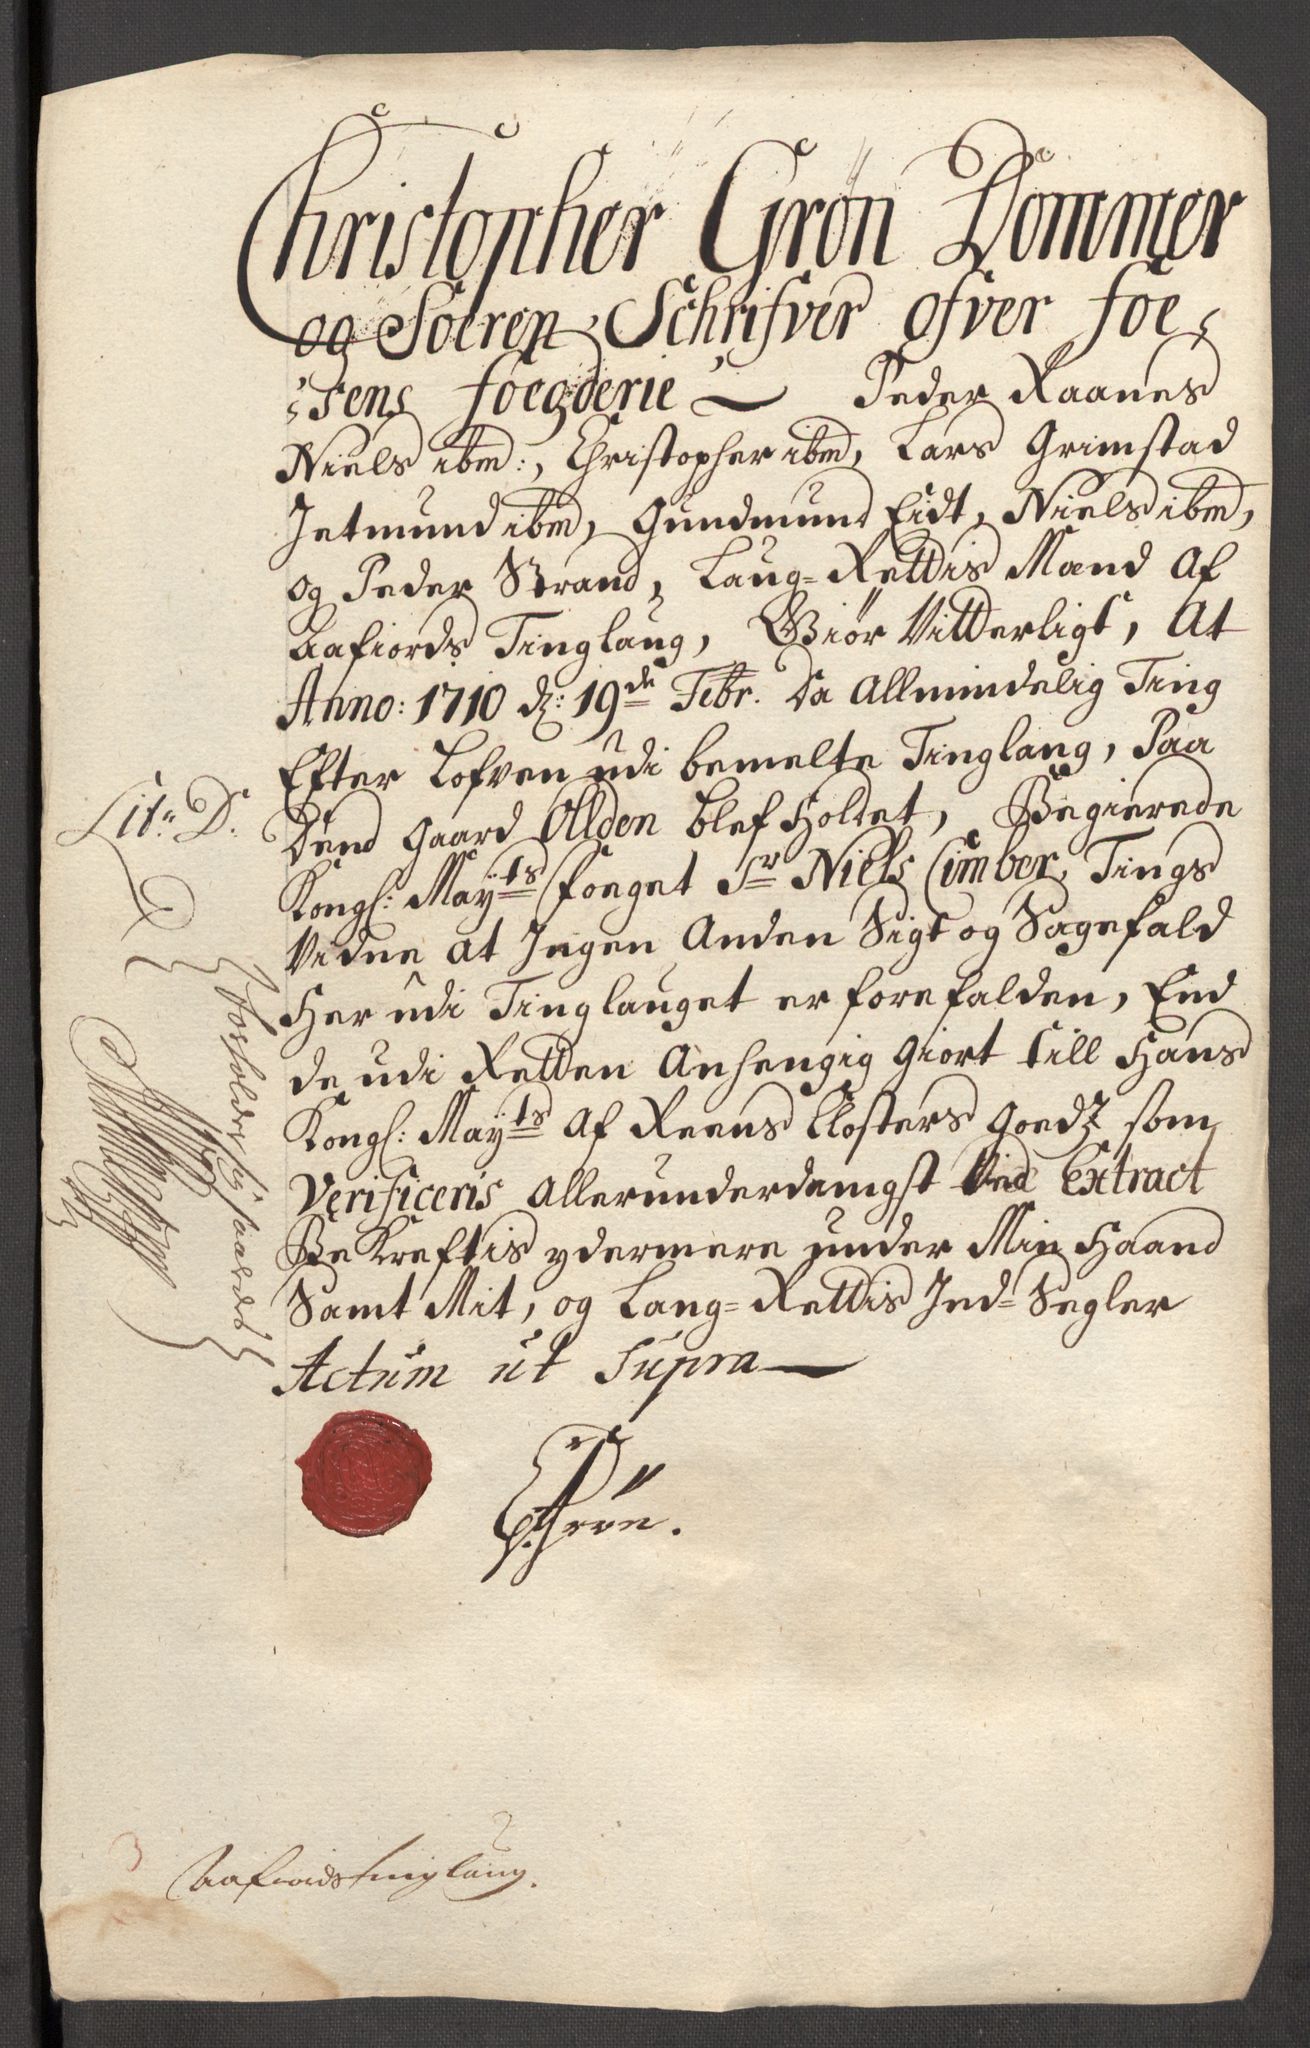 Christopher Grøn Dommer
og Soeren Schrifver ofver foe-
-sens foegderie — Peder Raanes
Niels ibm:, Christopher ibm, Lars Grimstad
Jetmund ibm, Gundmund Eidt, Niels ibm,
og Peder Strand, Laug-Rettis Mænd Af
Aafiords Tinglaug, Giör Vitterligt, At
Anno: 1710 d: 19de Febr. Da Allmindelig Ting
Efter Lofven udi bemelte Tinglaug, Paa
Dend gaard Ollden blef Holdet, Begierede
Kongl: Mayts foeget Sr Niels Cimber, Tings
Vidne at Ingen Anden Sigt og Sagefald
Her udi Tinglauget er forefalden, End
de udi Retten Anhengig Giort till Hans
Kongl: Mayts Af Reens Closters goedz som
Verificeris Allerunderdanigst Ved Extract
Bekreftis ydermere under Min Haand
Samt Mit, og Laug-Rettis Ind-Segler
Actum ut Supra —
Lit: D:
forholder sig saaledes
CGrön.
3
Aafiords tinglaug.